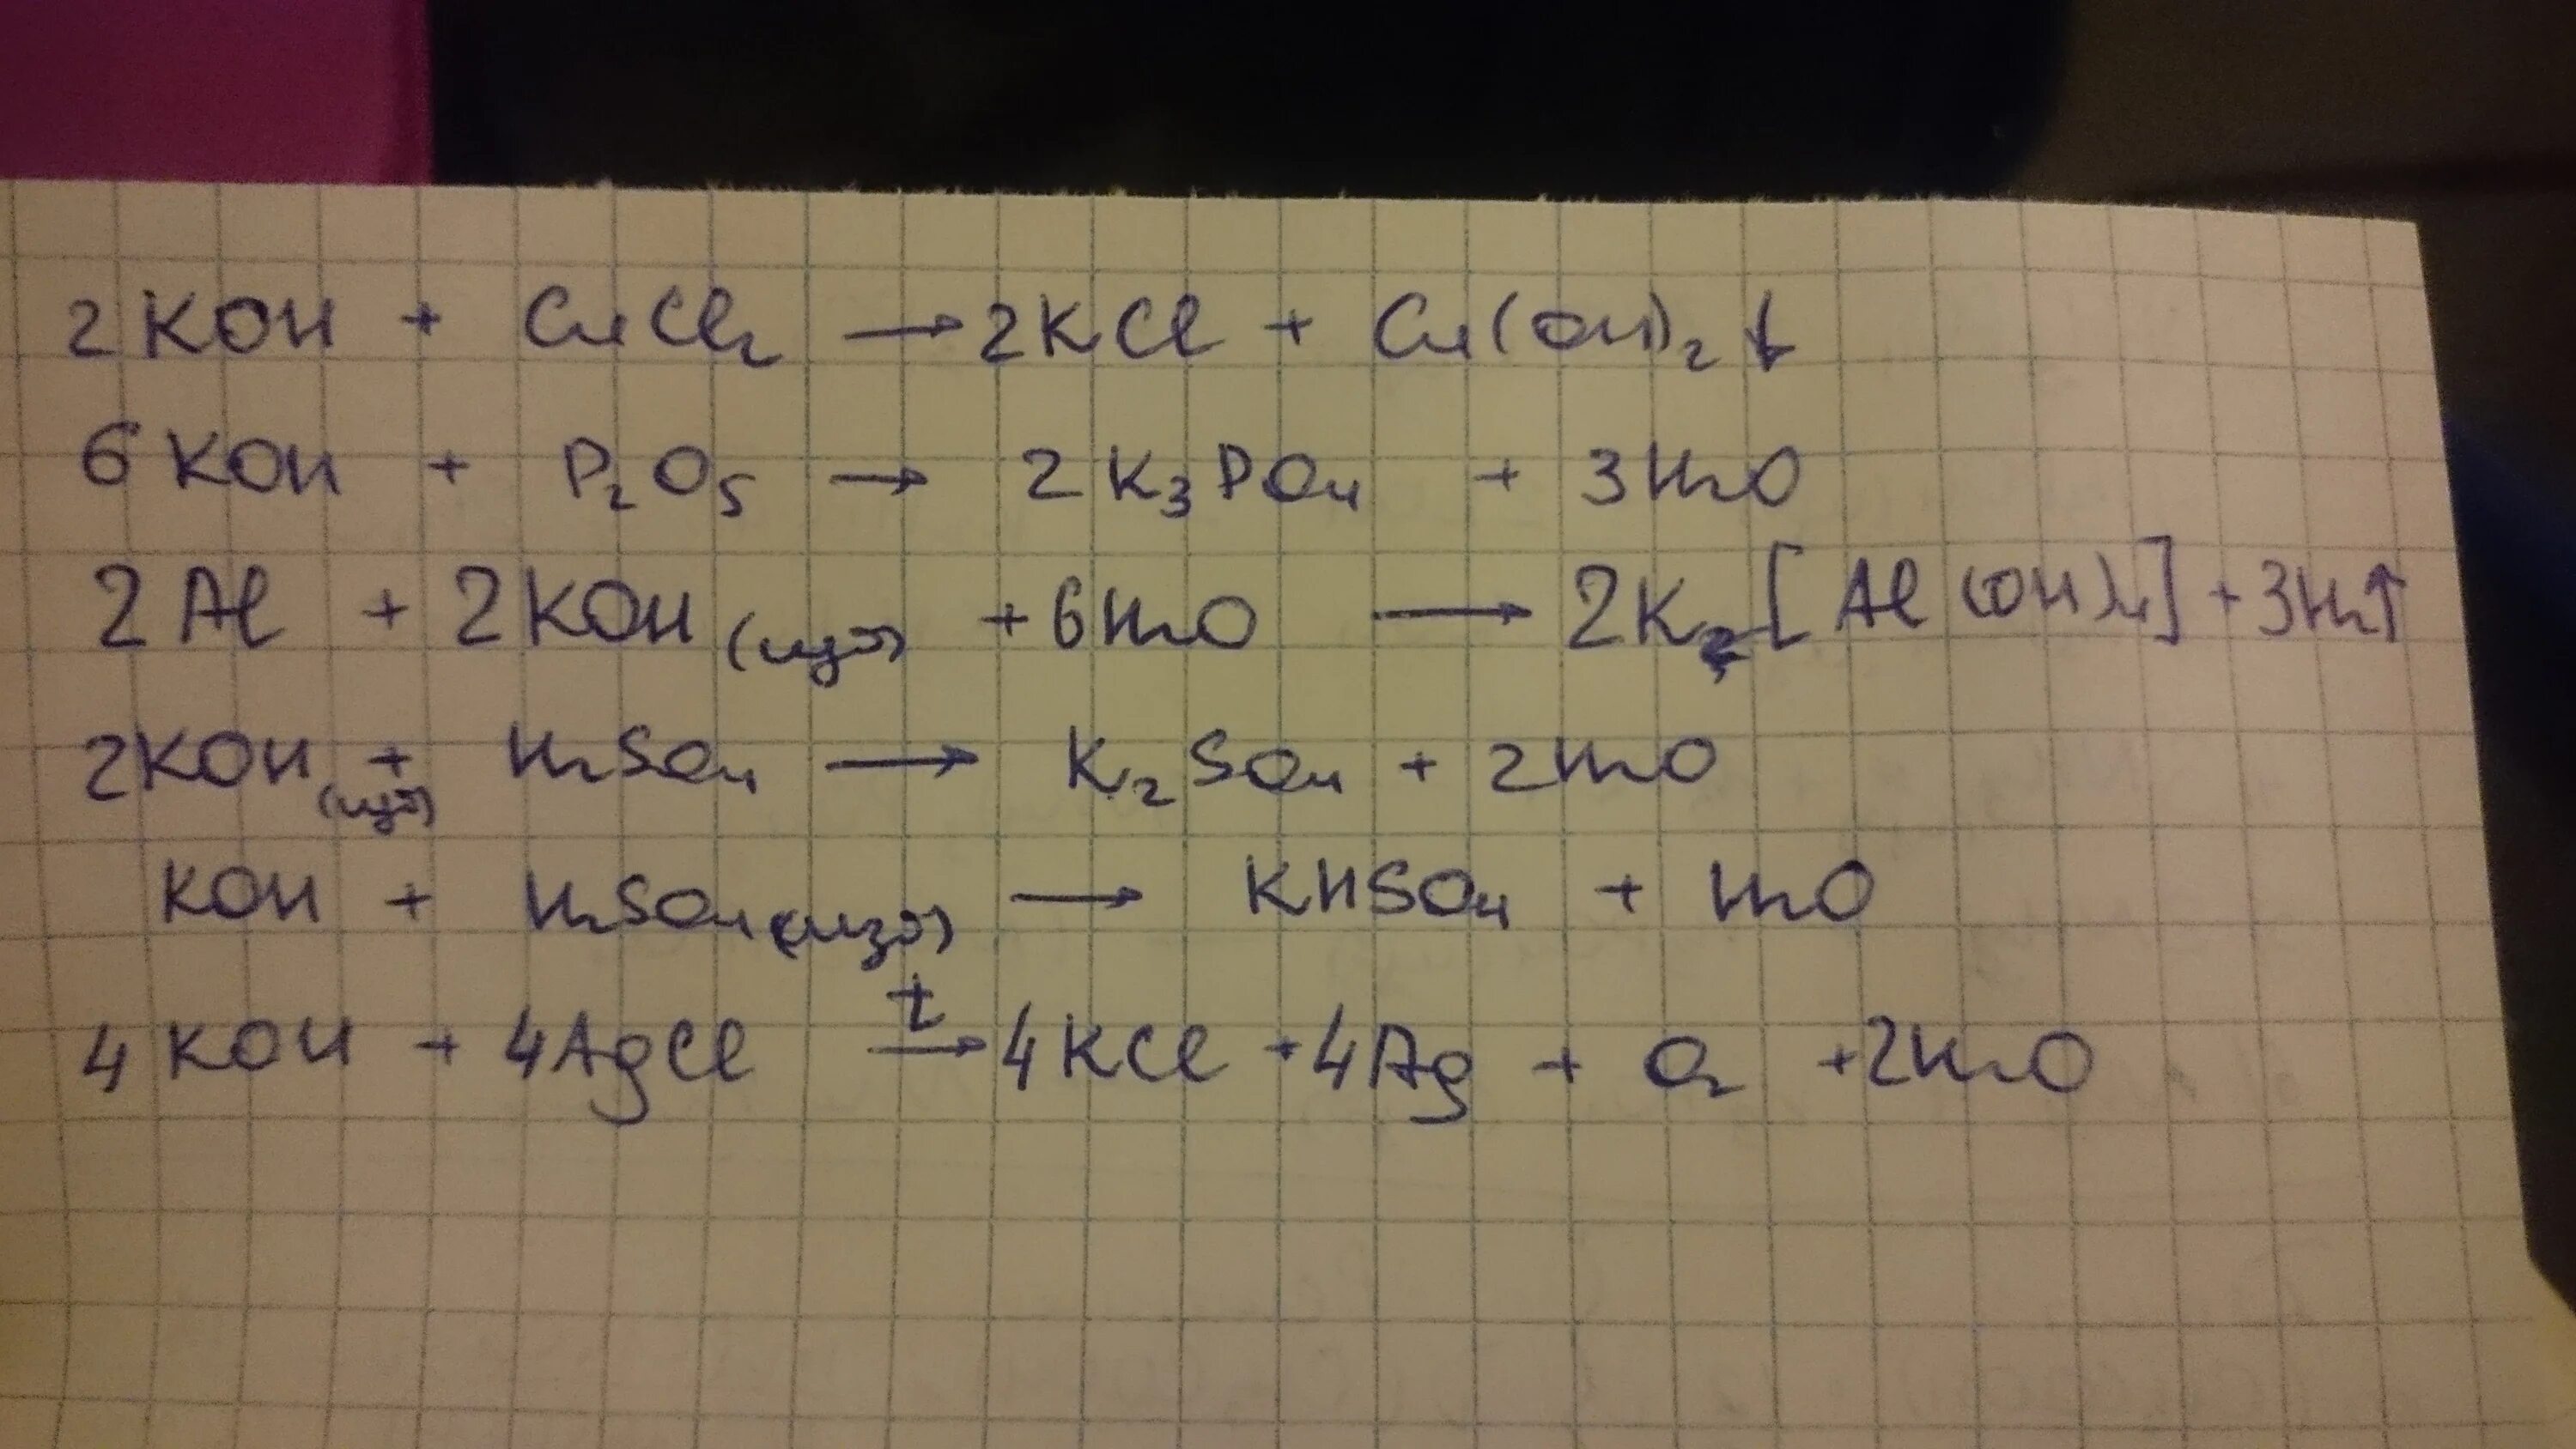 2KOH + CuCl₂ → 2KCl + Cu(OH)₂↓
6KOH + P₂O₅ → 2K₃PO₄ + 3H₂O
2Al + 2KOH (изб) + 6H₂O → 2K[Al(OH)₄] + 3H₂↑
2KOH (изб) + H₂SO₄ → K₂SO₄ + 2H₂O
KOH + H₂SO₄ (изб) → KHSO₄ + H₂O
4KOH + 4AgCl t→ 4KCl + 4Ag + O₂ + 2H₂O